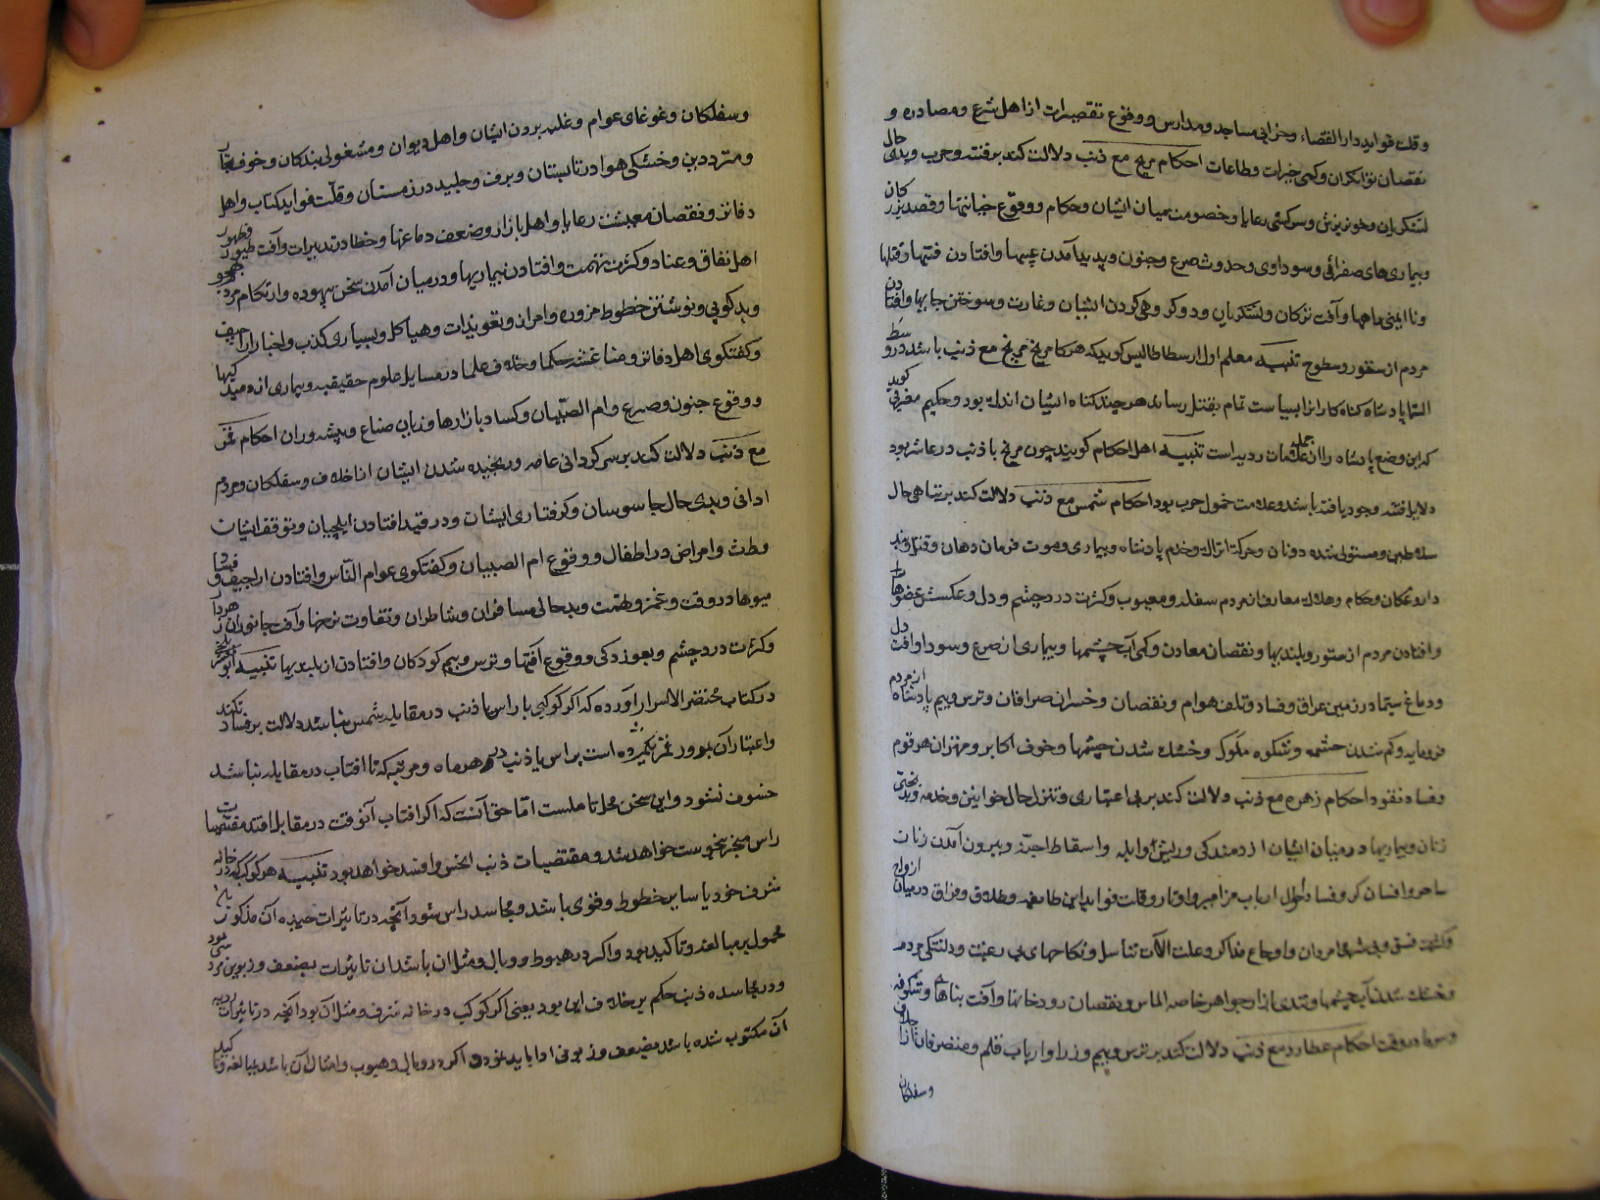 وقلت فواید دار القضاء وخرابی مساجد ومدارس ووقوع تقصیرات از اهل شرع ومصادره و
نقصان توانگران وکمی خیرات وطاعات احکام مریخ مع ذنب دلالت کند بر فتنه وحرب وبدی حال
لشکریان وخونریزش وسرکشی رعایا وخصومت میان ایشان وحکام ووقوع خیانتها وقصد بزرکان
وبیماری‌های صفرائی وسوداوی وحدوث صرع وجنون وپدید آمدن چشمها وافتادن فتنها وقتلها
ونا ایمنی راهها وآفت ترکان ولشکریان ودو کر وهی کردن ایشان وغارت وسوختن جایها وافتادن
مردم از سقور وسطوح تنبیه معلم اول ارسطاطالیس کوید که هرکا مریخ مع ذنب باشد در وسط
السما پادشاه کناه کارانرا بسیاست تمام بقتل رساند هر چند کناه ایشان اندک بود وحکیم مغربی کوید
که این وضع پادشاه را از جمله علامات ردیه است تنبیه اهل احکام کویند چون مریخ با ذنب در عاشر بود
دلایل فتنه وجود یافته باشد وعلامت خمول حرب بود احکام شمس مع ذنب دلالت کند بر تباهی حال
سلاطین ومستولی شدن دونان وحرکة اتراک وخدم پادشاه وبیماری وموت فرمان دهان وقتل وبند
داروغکان وحکام وهلاک معارف از مردم سفله ومعیوب وکثرت درد چشم ودل وعکستن عضوها
وافتادن مردم از ستور وبلندیها ونقصان معادن وکمی آب چشمها وبیماری از صرع وسودا وآفت دل
ودماغ سیما در زمین عراق وفساد وتلف هوام ونقصان وخسران صرافان وترس وبیم پادشاه از مردم
فرومایه وکم شدن حشمه وشکوه ملوک وخشک شدن چشمها وخوف اکابر ومهتران هر قوم
وفساد نقود احکام زهره مع ذنب دلالت کند بر بی اعتباری وتنزل حال خواتین وخدمه وبدبختی
زنان وبیماریها درمیان ایشان از دمندکی وریش وابله واسقاط اجنّه وبیرون آمدن زنان
ساحر وافسان کر وفساد احوال ارباب مزامیر واوتار وقلت فواید این طایفه وطلاق وفراق در میان ازواج
وکثرت فسق وبی شرمی امردان واوجاع مذاکر وعلت آلات تناسل ونکاحهای بی رغبت ودلتنکی مردم
وخشک شدن آب چشمها وتندی بازار جواهر خاصه الماس ونقصان رودخانها وآفت بناها وشکوفه
وسرما در وقت احکام عطارد مع ذنب دلالت کند بر ترس وبیم وزرا وارباب قلم ومتصرفان
وسفلکان
وسفلکان وغوغای عوام وغلبه بردن ایشان واهل دیوان ومشغولی بندکان وخوف تجار
ومترددین وخشکی هوا در تابستان وبرف وجلید در زمستان وقلّت فواید کتاب واهل
دفاتر ونقصان معیشت رعایا واهل بازار وضعف دماغها وخطا در تدبیرات وآفت طیور وظهور
اهل نفاق وعناد وکثرت تهمت وافتادن بیماریها ودرمیان آمدن سخن بیهوده وارتکام مردم بهجو
وبدکویی ونوشتن خطوط مزوره وامران وتعویذات وهیاکل وبسیاری کذب واخبار اراجیف
وکفتکوی اهل دفاتر ومناغشه حکما وخلاف علما در مسایل علوم حقیقیه وبیماری از دمیدکیها
ووقوع جنون وصرع وام الصّبیان وکساد بازارها وزیان صناع وپیشه وران احکام قمر
مع ذنب دلالت کند بر سرکردانی عامه ورنجیده شدن ایشان از اخلاف وسفلکان ومردم
ادانی وبدی حال جاسوسان وکرفتاری ایشان ودر قید افتادن ایلچیان وتوقف ایشان
وطث وامراض در اطفال ووقوع ام الصبیان وکفتکوی عوام النّاس وافتادن اراجیف وفساد
میوها در وقت وغمز وتهمت وبدحالی مسافران وشاطران وتفاوت نرخها وآفت جانوران
وکثرت درد چشم وبعوزدکی ووقوع آفتها وترس وبیم کودکان وافتادن از بلندیها تنبیه
در کتاب مختصر الاسرار آورده که اکر کوکبی با راس یا ذنب در مقابله شمس نباشد دلالت بر فساد نکند
واعتبار آن بر ور غزنکیر وه است براس یا ذنب در هر ماه ومرتبه که تا افتاب در مقابله نباشد
خسوف نشود واین سخن محل تاملست امّا حق آنست که اکر افتاب آنوقت در مقابل افتد مقتضیات
راس منجر بنحوست خواهد شد ومقتضیات ذنب انحس وافسد خواهد بود تنبیه هر کوکب که در خانه
شرف خود یا سایر خطوط وقوی باشد ومجاسد راس شود آنچه در تاثیرات حمیده آن مذکور
محمول بر مبالغه وتاکید بود واکر در هبوط ووبال ومثل ان باشد ان تاثیرات بضعف وزبونی مردود
ودر مجاسده ذنب حکم بر خلاف این بود یعنی اکر کوکب در خانه شرف ومثل آن بود آنچه در تاثیرات ردیه
آن مکتوب شده باشد بضعف وزبونی ادا باید نمود واکر در وبال وهبوط وامثال آن باشد بمبالغه وتاکید